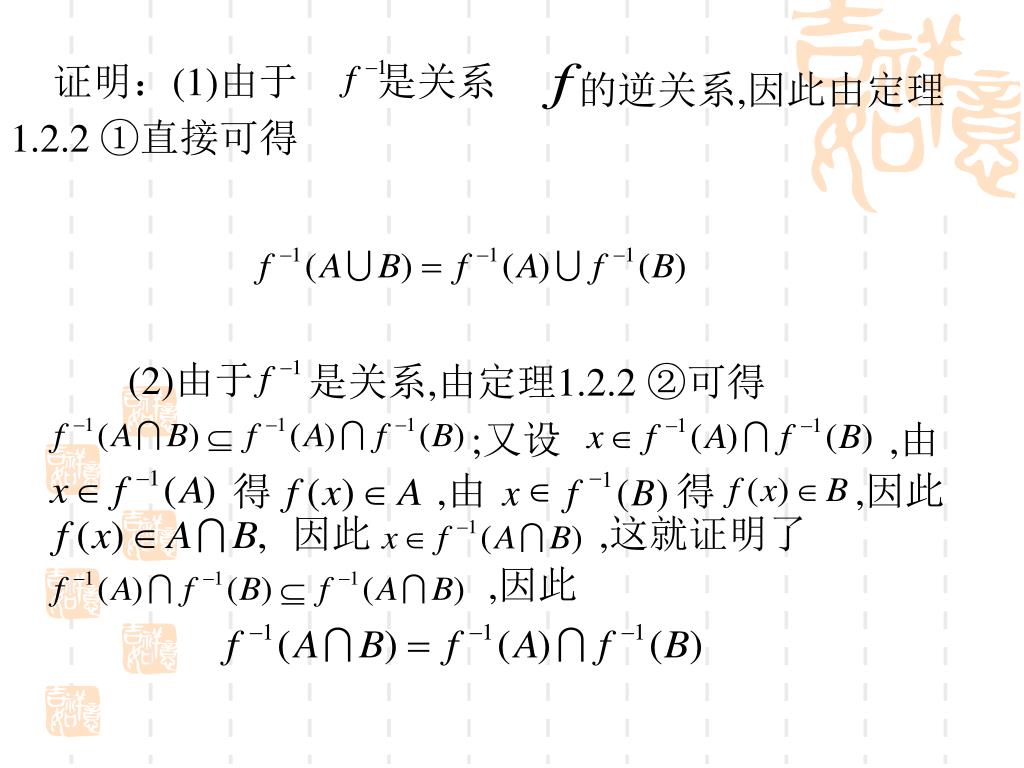 证明：(1)由于 f⁻¹是关系 f的逆关系,因此由定理
1.2.2 ①直接可得
f⁻¹(A∪B) = f⁻¹(A)∪f⁻¹(B)
(2)由于f⁻¹ 是关系,由定理1.2.2 ②可得
f⁻¹(A∩B) ⊆ f⁻¹(A)∩f⁻¹(B) ;又设 x∈f⁻¹(A)∩f⁻¹(B) ,由
x∈f⁻¹(A) 得 f(x)∈A ,由 x∈f⁻¹(B) 得 f(x)∈B ,因此
f(x)∈A∩B, 因此 x∈f⁻¹(A∩B) ,这就证明了
f⁻¹(A)∩f⁻¹(B) ⊆ f⁻¹(A∩B) ,因此
f⁻¹(A∩B) = f⁻¹(A)∩f⁻¹(B)
吉祥
如意
吉祥
如意
吉祥
如意
吉祥
如意
吉祥
如意
吉祥
如意
吉祥
如意